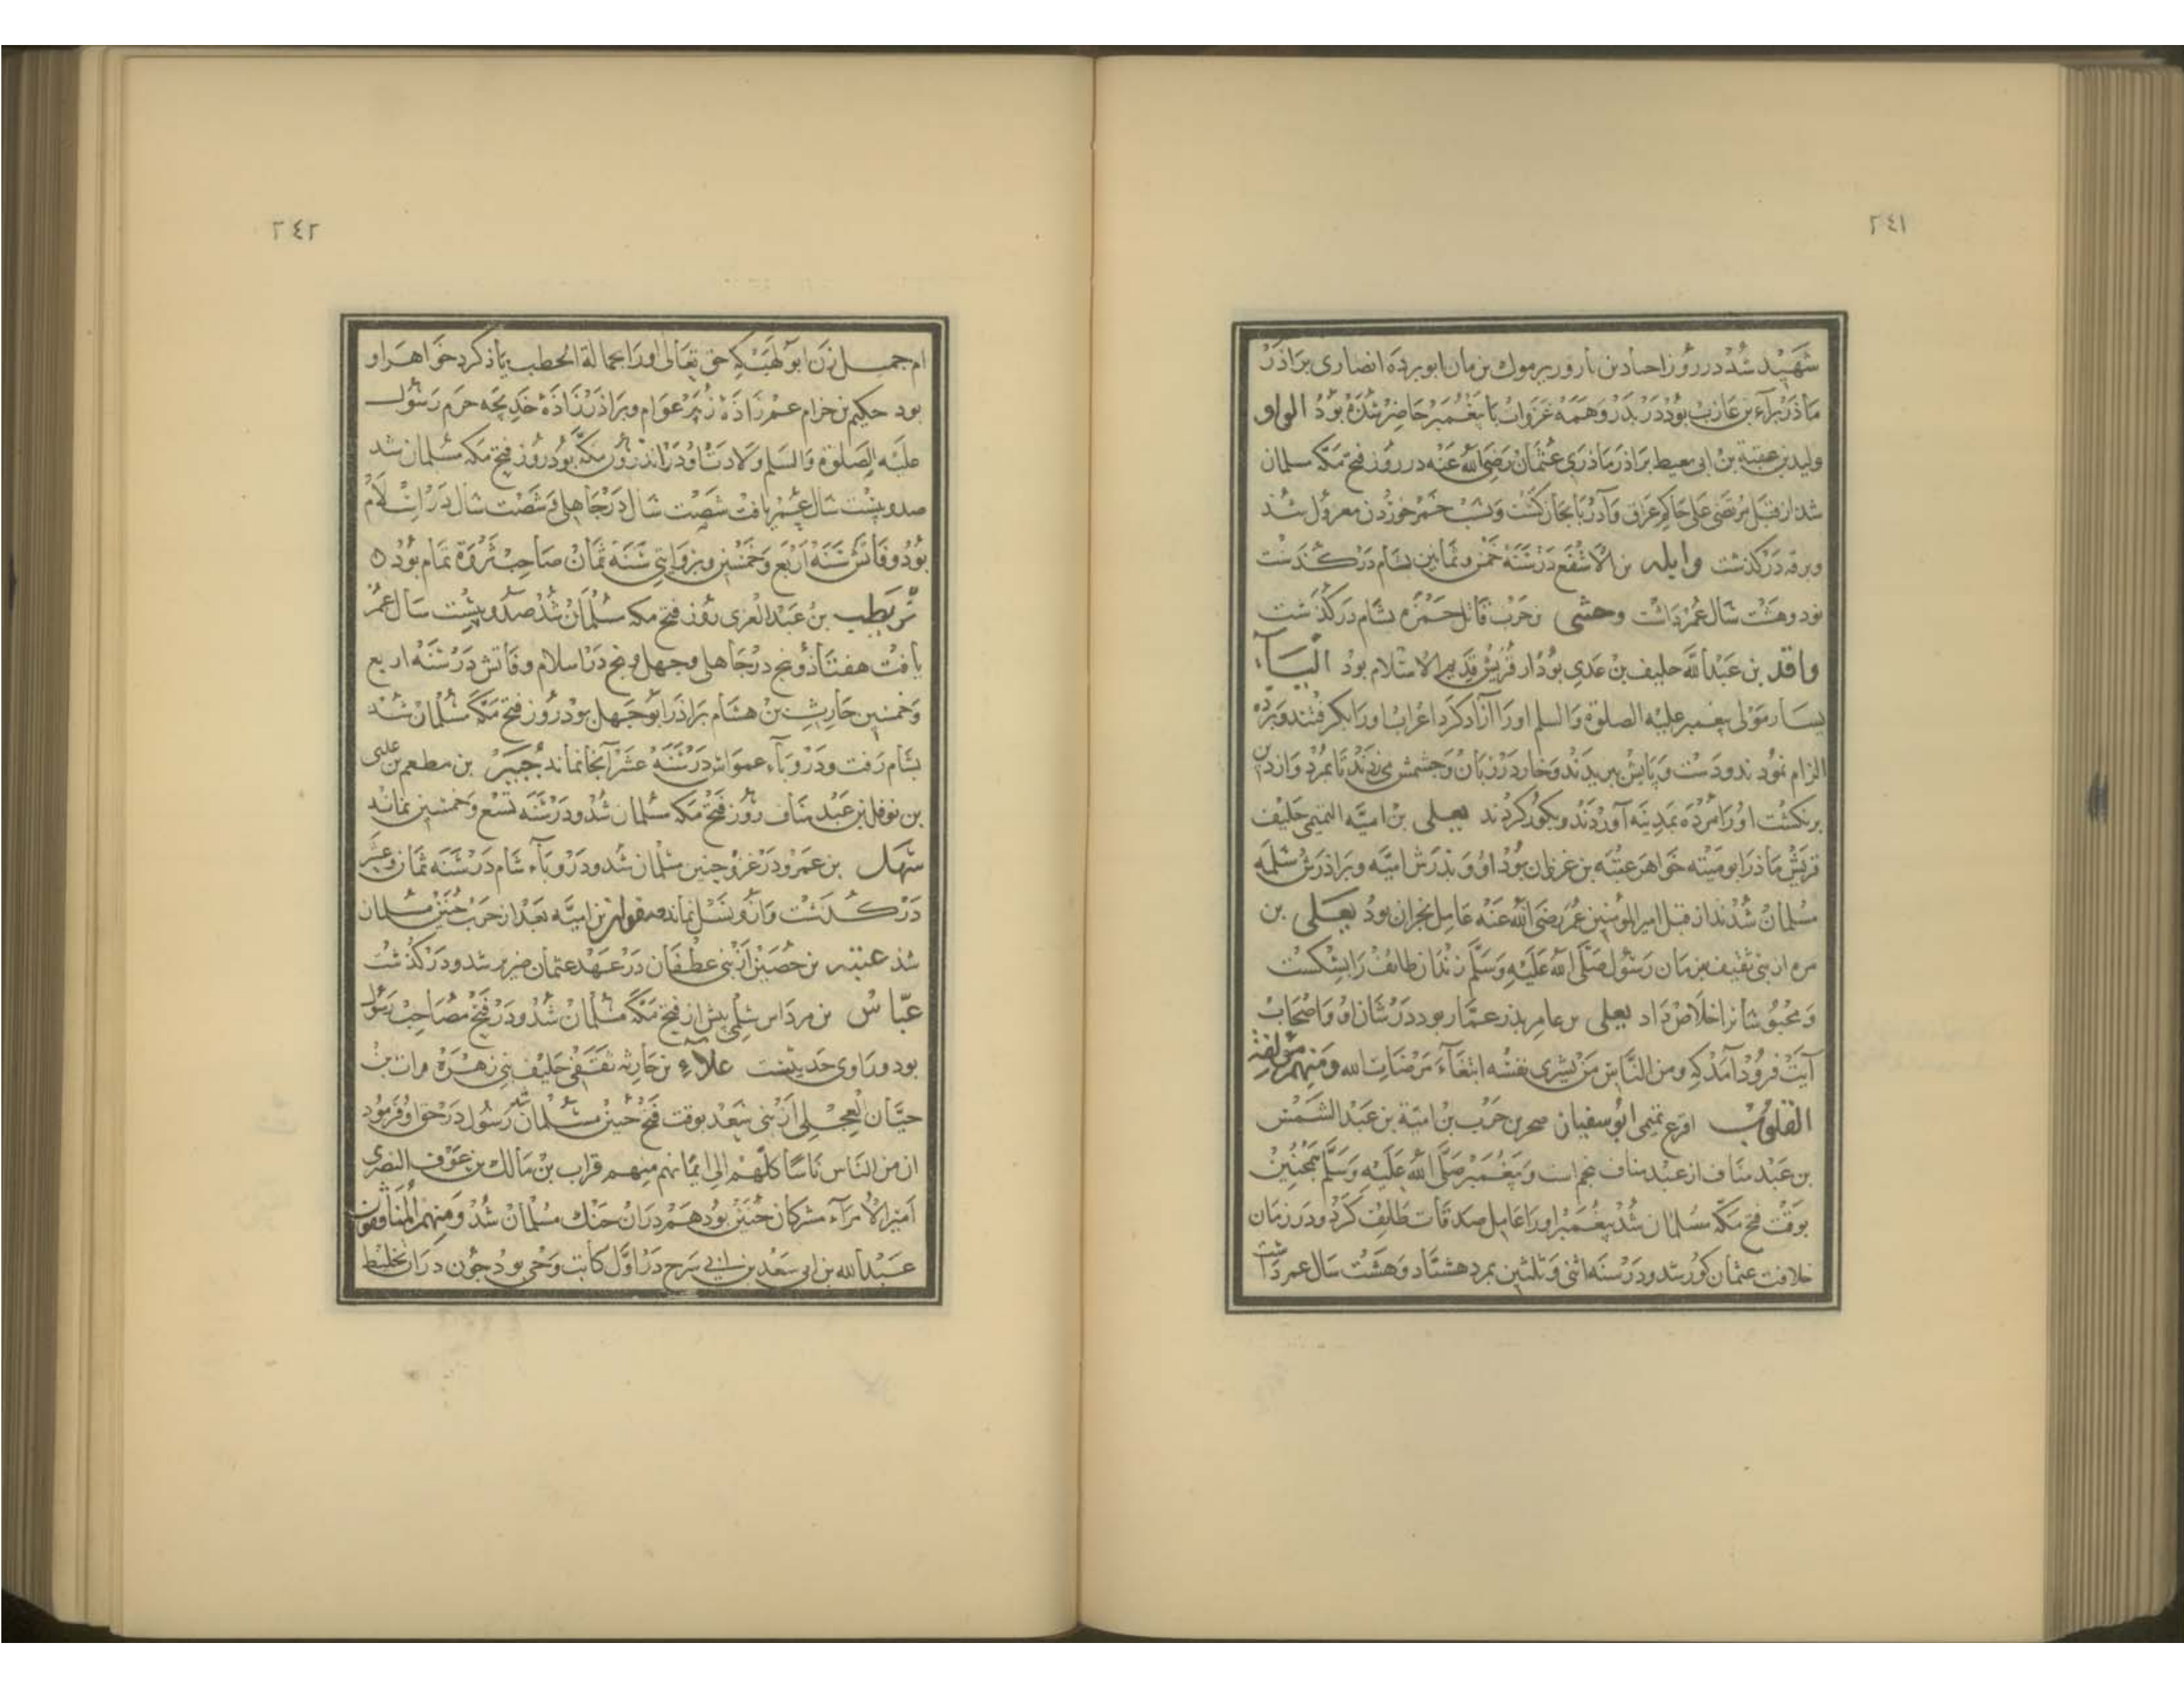 ٢٤١
شهید شد در روز احنادین تا روز یرموك بن مان ابو برده انصاری براذر
ماذر براء بن عازب بوذ در بدر و همه غزوات با پیغمبر حاضر شده بوذ الواو
ولید بن عقبة بن ابی معیط براذر ماذری عثمان رضی الله عنه در روز فتح مکه مسلمان
شد از قبل مرتضی علی حاکم عراق و آذربایجان کشت و بسبب خمر خوردن معزول شد
و برقه درکذشت وایله بن الاشفع در سنه خمس و ثمانین بشام درکذشت
نود و هشت سال عمر داشت وحشی بن حرب قاتل حمزه بشام درکذشت
واقد بن عبدالله حلیف بن عدی بود از قریش قدیم الاسلام بود الیاء
یسار مولی پیغمبر علیه الصلوة والسلم اورا آزاد کرد اعراب اورا بکرفتند و برده
الزام نمودند و دست و پایش ببریدند و خار در زبان و چشمش می زدند تا بمرد و از دین
برنکشت اورا مرده بمدینه آوردند و بکور کردند یعلی بن امیه التمیمی حلیف
قریش ماذر ابو منیته خواهر عتبه بن غزوان بود او و پدرش امیه و براذرش سلمه
مسلمان شدند از قبل امیر المومنین عمر رضی الله عنه عامل نجران بود یعلی بن
مره از بنی ثقیف بزمان رسول صلی الله علیه وسلم زندان طائف را بشکست
و محبوسانرا خلاص داد یعلی بن عامر پدر عمار بود در شان او و اصحاب
آیت فرود آمد که ومن الناس من یشری نفسه ابتغاء مرضات الله ومنهم مؤلفة
القلوب اقرع تمیمی ابو سفیان صخر بن حرب بن امیة بن عبد الشمس
بن عبد مناف از عبد مناف پنجم است و پیغمبر صلی الله علیه وسلم همچنین
بوقت فتح مکه مسلمان شد پیغمبر اورا عامل صدقات طایف کرد و در زمان
خلافت عثمان کور شد و در سنه اثنی و ثلثین بمرد هشتاد و هشت سال عمر داشت
٢٤٢
ام جمیل زن ابو لهب که حق تعالی اورا بحمالة الحطب یاذ کرد خواهر او
بود حکیم بن حزام عم زاذه زبیر عوام و براذر زاذه خدیجه حرم رسول
علیه الصلوة والسلم ولادت او در اندرون مکه بود روز فتح مکه مسلمان شد
صد و بیست سال عمر یافت شصت سال در جاهلی و شصت سال در اسلام
بود و فاتش سنه اربع و خمسین و بروایتی سنه ثمان صاحب ثروة تمام بود ٥
بن عبد العزی روز فتح مکه مسلمان شد صد و بیست سال عمر
یافت هفتاذ و پنج در جاهلی و چهل و پنج در اسلام و فاتش در سنه اربع
و خمسین حارث بن هشام براذر ابو جهل بود روز فتح مکه مسلمان شد
بشام رفت و در وباء عمواس در سنه عشر آنجا نماند جبیر بن مطعم بن علی
بن نوفل بن عبد مناف روز فتح مکه مسلمان شد و در سنه تسع و خمسین نماند
سهل بن عمرو در غزو حنین مسلمان شد و در وباء شام در سنه ثمان وعشر
درکذشت و ازو نسل نماند صفوان بن امیه بعد از حرب حنین مسلمان
شد عتبه بن حصین از بنی غطفان در عهد عثمان ضریر شد و درکذشت
عباس بن مرداس سلمی پیش از فتح مکه مسلمان شد و در فتح مصاحب رسول
بود و راوی حدیثست علاء بن حارثه ثقفی حلیف بنی زهره فرات بن
حیان العجلی از بنی سعد بوقت فتح حنین مسلمان شد رسول در حق او فرمود
ان من الناس ناسا کلهم الی ایمانهم منهم قراب بن مالك بن عوف النصری
امیر الامراء مشرکان حنین بود هم دران جنك مسلمان شد ومنهم المنافقون
عبدالله بن ابی سعد بن ابی سرح در اول کاتب وحی بود چون دران تخلیط